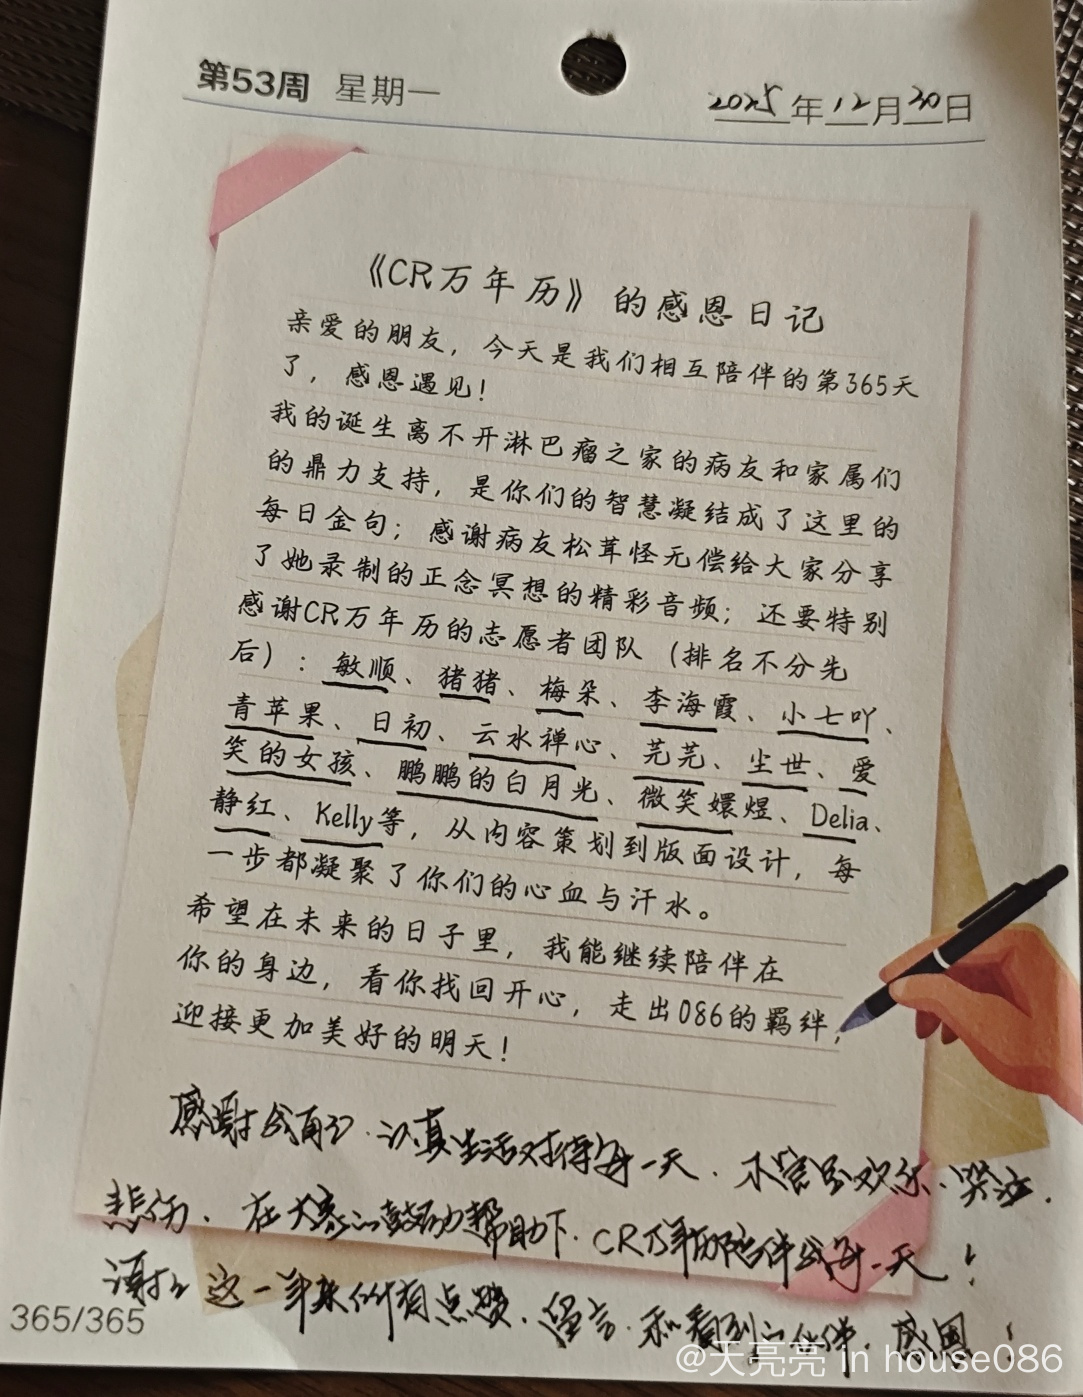 第53周 星期一
2025年12月30日
《CR万年历》的感恩日记
亲爱的朋友，今天是我们相互陪伴的第365天
了，感恩遇见！
我的诞生离不开淋巴瘤之家的病友和家属们
的鼎力支持，是你们的智慧凝结成了这里的
每日金句；感谢病友松茸怪无偿给大家分享
了她录制的正念冥想的精彩音频；还要特别
感谢CR万年历的志愿者团队（排名不分先
后）：敏顺、猪猪、梅朵、李海霞、小七吖、
青苹果、日初、云水禅心、芫芫、尘世、爱
笑的女孩、鹏鹏的白月光、微笑嬛煜、Delia、
静红、Kelly等，从内容策划到版面设计，每
一步都凝聚了你们的心血与汗水。
希望在未来的日子里，我能继续陪伴在
你的身边，看你找回开心，走出086的羁绊，
迎接更加美好的明天！
感谢我自己.认真生活对待每一天.不管是欢乐、哭泣.
悲伤.在大家的鼓励帮助下.CR万年历陪伴我每一天！
谢谢这一年来所有点赞.留言.和看到的伙伴.感恩！
365/365
@天亮亮 in house086